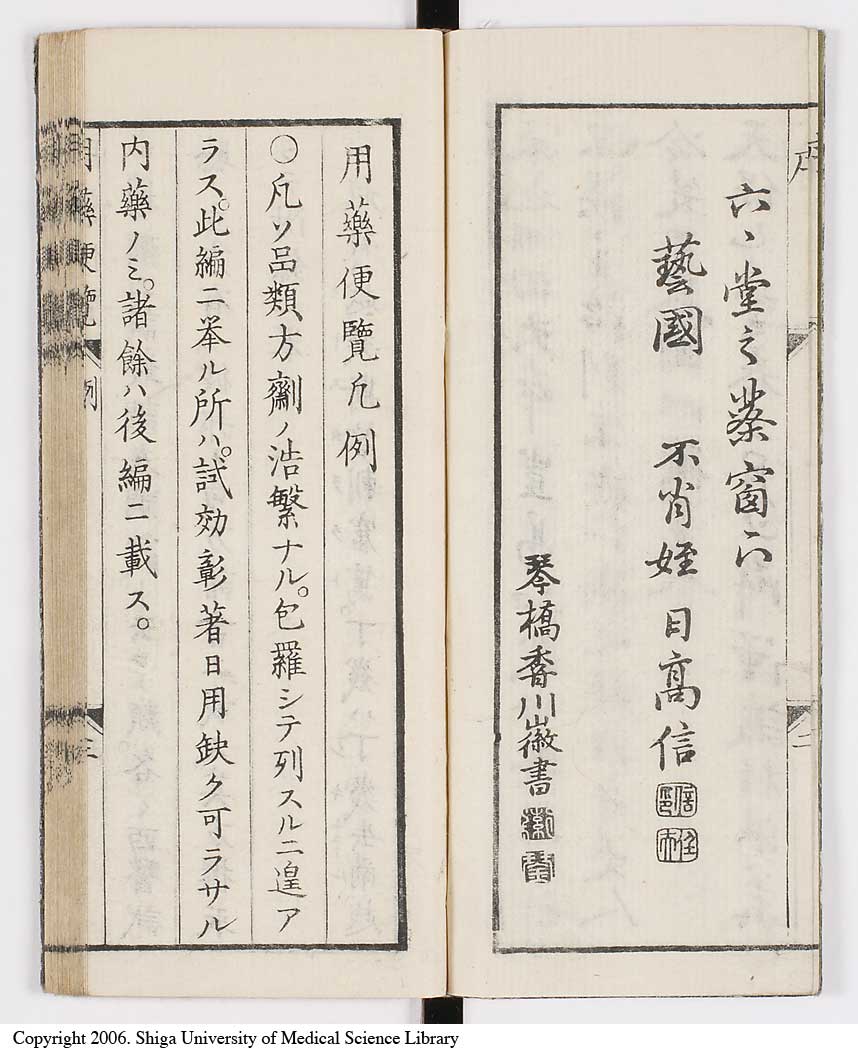 六々堂之藥窗下
藝國 不肖姪 日高信
琴橋香川徽書
用藥便覽凡例
○凡ソ品類方劑ノ浩繁ナル。包羅シテ列スルニ遑ア
ラス。此編ニ挙ル所ハ。試効彰著日用缺ク可ラサル
内藥ノミ。諸餘ハ後編ニ載ス。
用藥便覽
例
三
Copyright 2006. Shiga University of Medical Science Library